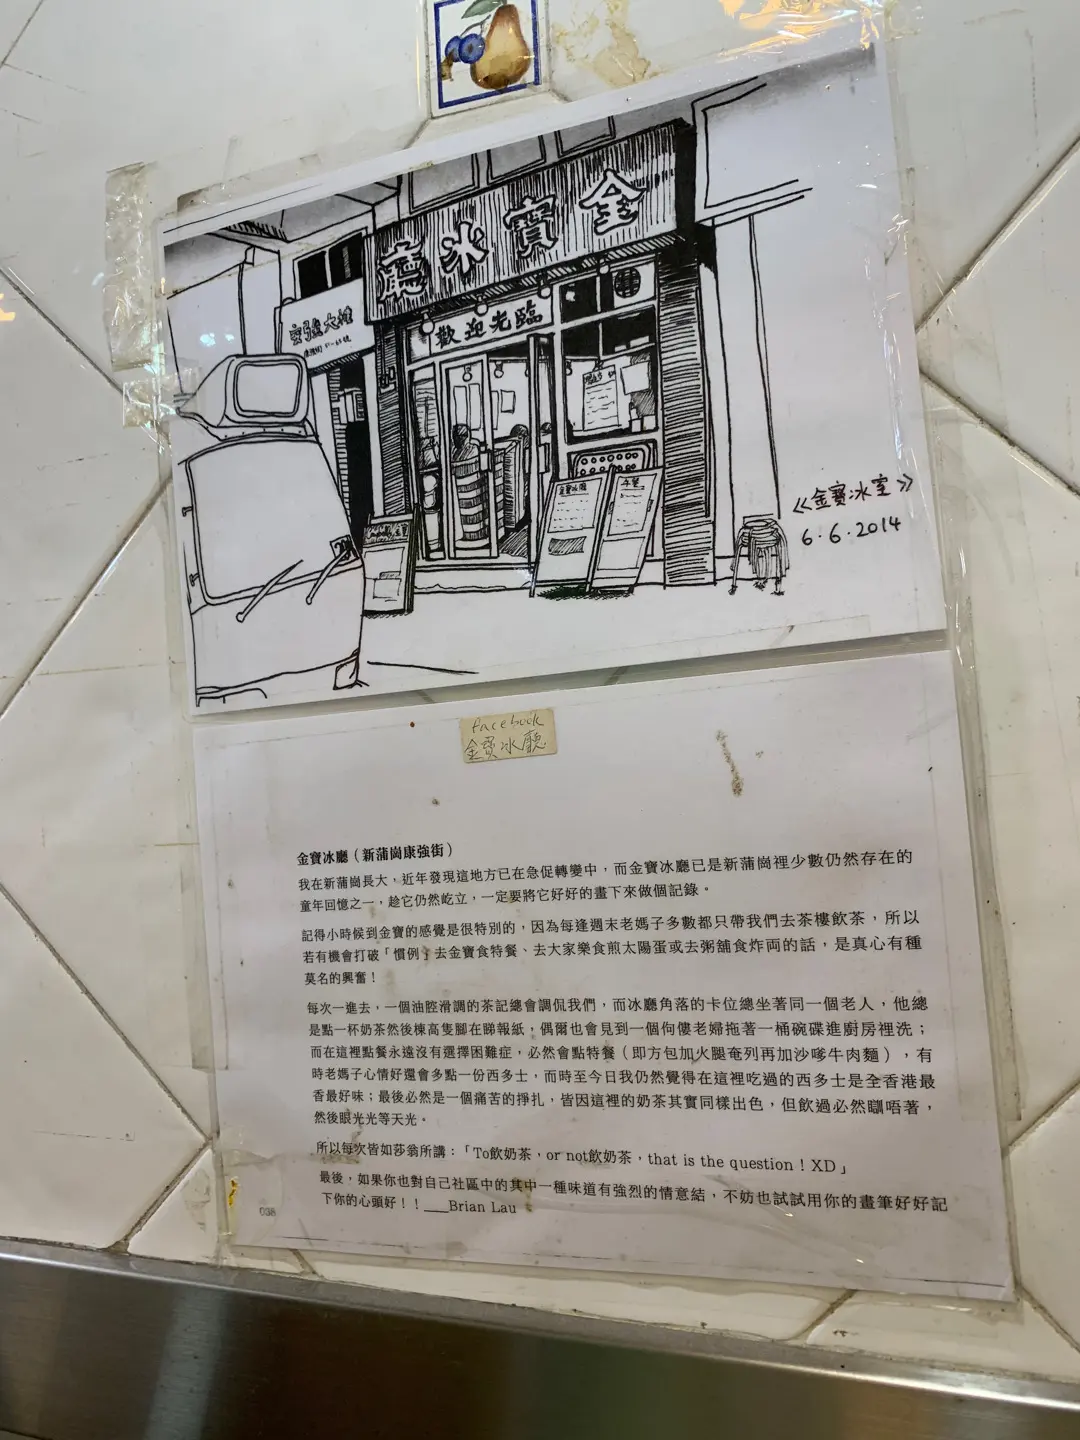 金寶冰廳
歡迎光臨
康強大樓
《金寶冰室》
6.6.2014
facebook
金寶冰廳
金寶冰廳（新蒲崗康強街）
我在新蒲崗長大，近年發現這地方已在急促轉變中，而金寶冰廳已是新蒲崗裡少數仍然存在的
童年回憶之一，趁它仍然屹立，一定要將它好好的畫下來做個記錄。
記得小時候到金寶的感覺是很特別的，因為每逢週末老媽子多數都只帶我們去茶樓飲茶，所以
若有機會打破「慣例」去金寶食特餐、去大家樂食煎太陽蛋或去粥舖食炸両的話，是真心有種
莫名的興奮！
每次一進去，一個油腔滑調的茶記總會調侃我們，而冰廳角落的卡位總坐著同一個老人，他總
是點一杯奶茶然後棟高隻腳在睇報紙，偶爾也會見到一個佝僂老婦拖著一桶碗碟進廚房裡洗；
而在這裡點餐永遠沒有選擇困難症，必然會點特餐（即方包加火腿奄列再加沙嗲牛肉麵），有
時老媽子心情好還會多點一份西多士，而時至今日我仍然覺得在這裡吃過的西多士是全香港最
香最好味；最後必然是一個痛苦的掙扎，皆因這裡的奶茶其實同樣出色，但飲過必然瞓唔著，
然後眼光光等天光。
所以每次皆如莎翁所講：「To飲奶茶，or not飲奶茶，that is the question！XD」
最後，如果你也對自己社區中的其中一種味道有強烈的情意結，不妨也試試用你的畫筆好好記
下你的心頭好！！___Brian Lau
038